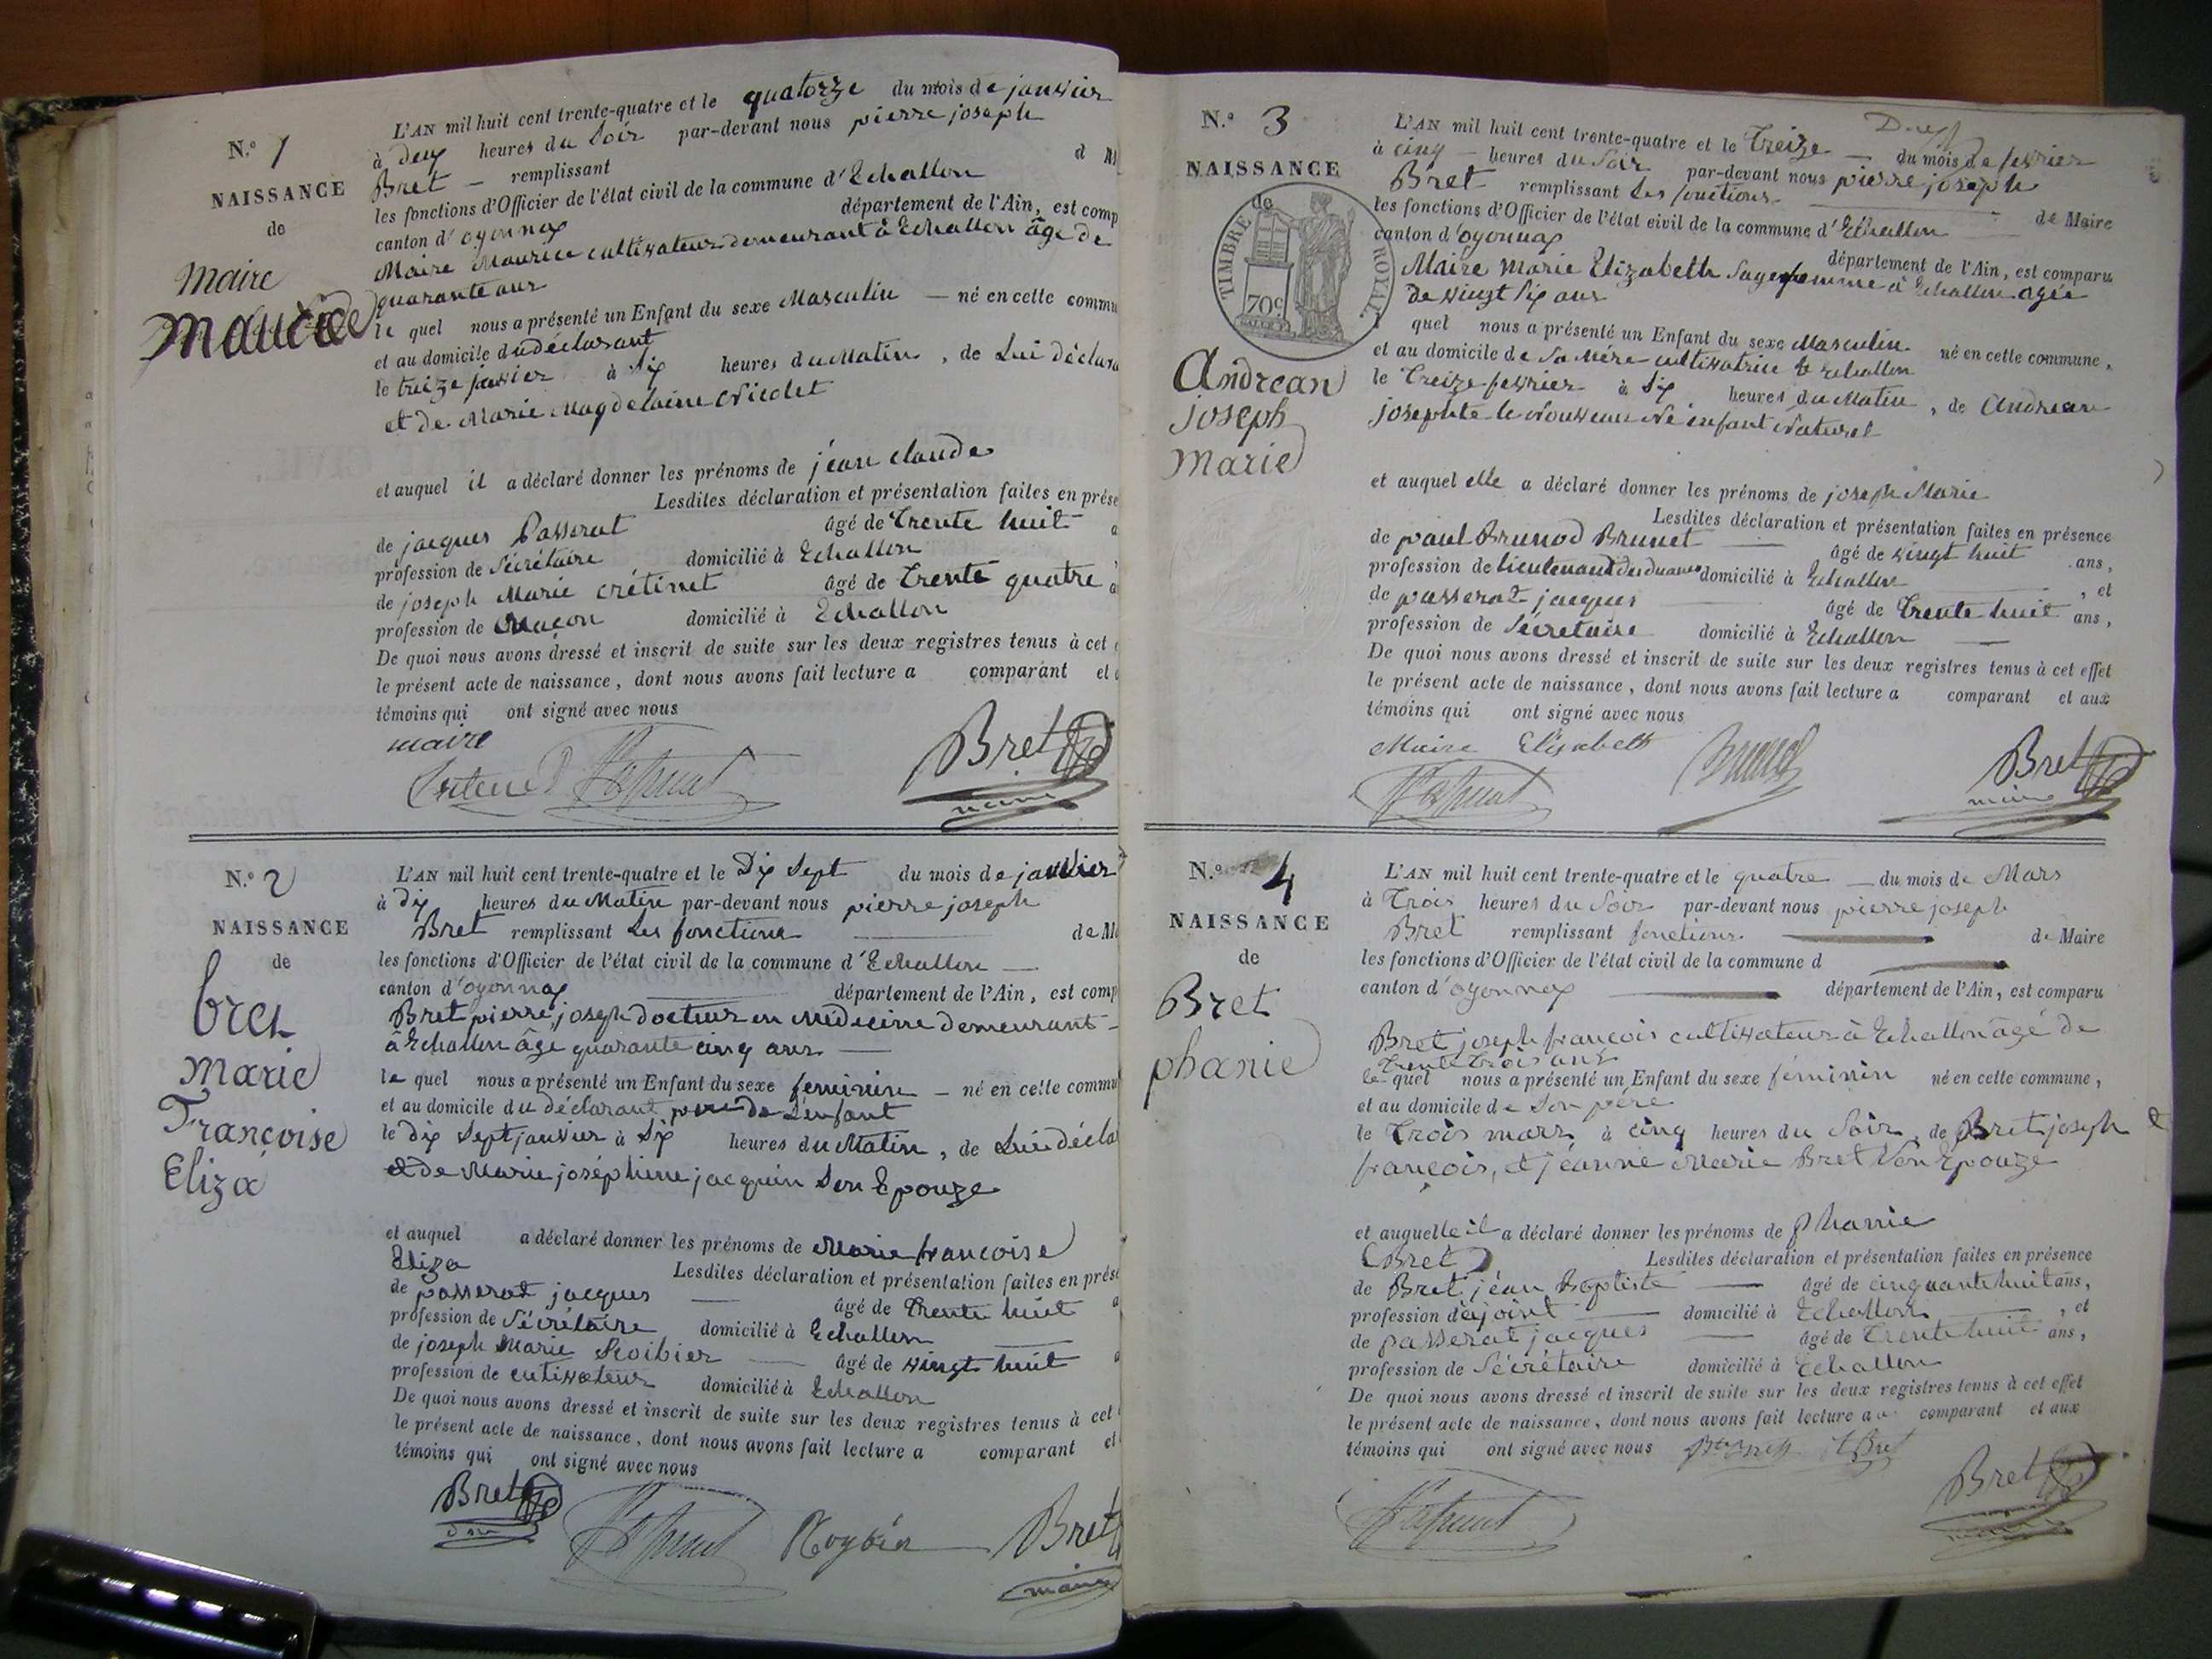 N.º 1
NAISSANCE
de
Maire
Maurice
L'AN mil huit cent trente-quatre et le quatorze du mois de janvier
à deux heures du Soir par-devant nous pierre joseph
Bret remplissant d M
les fonctions d'Officier de l'état civil de la commune d'Echallon
canton d'oyonnax département de l'Ain, est comp
Maire Maurice cultivateur demeurant à Echallon âgé de
quarante ans
le quel nous a présenté un Enfant du sexe Masculin né en cette commu
et au domicile du déclarant
le treize javier à Six heures du Matin, de Lui déclara
et de Marie Magdelaine Nicolet
et auquel il a déclaré donner les prénoms de jéan claude
Lesdites déclaration et présentation faites en prése
de jacques Passerat âgé de trente huit a
profession de Sécrétaire domicilié à Echallon
de joseph Marie crétinet âgé de trente quatre a
profession de Maçon domicilié à Echallon
De quoi nous avons dressé et inscrit de suite sur les deux registres tenus à cet e
le présent acte de naissance, dont nous avons fait lecture a comparant et
témoins qui ont signé avec nous
maire
Bret
maire
N.º 2
NAISSANCE
de
bret
Marie
Françoise
Eliza
L'AN mil huit cent trente-quatre et le Dix Sept du mois de janvier
à dix heures du Matin par-devant nous pierre joseph
Bret remplissant Les fonctions de M
les fonctions d'Officier de l'état civil de la commune d'Echallon
canton d'oyonnax département de l'Ain, est comp
Bret pierre joseph docteur en Médecine demeurant
à Echallon âgé quarante cinq ans
le quel nous a présenté un Enfant du sexe feminin né en cette commu
et au domicile du déclarant pere de L'enfant
le dix Sept janvier à Six heures du Matin, de Lui décla
et de Marie joséphine jacquin Son Epouze
et auquel a déclaré donner les prénoms de Marie françoise
Eliza
Lesdites déclaration et présentation faites en prése
de passerat jacques âgé de trente huit a
profession de Sécrétaire domicilié à Echallon
de joseph Marie Roibier âgé de vingt huit a
profession de cutivateur domicilié à Echallon
De quoi nous avons dressé et inscrit de suite sur les deux registres tenus à cet
le présent acte de naissance, dont nous avons fait lecture a comparant et
témoins qui ont signé avec nous
Bret
Bret
maire
N.º 3
NAISSANCE
de
TIMBRE ROYAL
70c
Andrean
joseph
Marie
L'AN mil huit cent trente-quatre et le treize du mois de fevrier
à cinq heures du Soir par-devant nous pierre joseph
Bret remplissant Les fonctions de Maire
les fonctions d'Officier de l'état civil de la commune d'Echallon
canton d'oyonnax département de l'Ain, est comparu
Maire Marie Elizabeth Sage femme à Echallon agée
de vingt Six ans
quel nous a présenté un Enfant du sexe Masculin né en cette commune,
et au domicile de Sa Mére cultivatrice à Echallon
le treize fevrier à Six heures du Matin, de Andrean
josephte le Nouveau Né enfant Naturel
et auquel elle a déclaré donner les prénoms de joseph Marie
Lesdites déclaration et présentation faites en présence
de paul Brunod Brunet âgé de vingt huit ans,
profession de lieutenant des duanes domicilié à Echallon, et
de passerat jacques âgé de trente huit ans,
profession de Sécretaire domicilié à Echallon
De quoi nous avons dressé et inscrit de suite sur les deux registres tenus à cet effet
le présent acte de naissance, dont nous avons fait lecture a comparant et aux
témoins qui ont signé avec nous
Maire Elisabeth
Bret
maire
N.º 4
NAISSANCE
de
Bret
phanie
L'AN mil huit cent trente-quatre et le quatre du mois de Mars
à trois heures du Soir par-devant nous pierre joseph
Bret remplissant fonctions de Maire
les fonctions d'Officier de l'état civil de la commune d
canton d'oyonnax département de l'Ain, est comparu
Bret joseph françois cultivateur à Echallon âgé de
trente trois ans
le quel nous a présenté un Enfant du sexe féminin né en cette commune,
et au domicile de Son pére
le trois mars à cinq heures du Soir, de Bret joseph
françois, et jéanne Marie Bret Son Epouze
et auquelle il a déclaré donner les prénoms de phanie
(Bret)
Lesdites déclaration et présentation faites en présence
de Bret jéan Baptiste âgé de cinquante huit ans,
profession d'ajoint domicilié à Echallon, et
de passerat jacques âgé de trente huit ans,
profession de Sécrétaire domicilié à Echallon
De quoi nous avons dressé et inscrit de suite sur les deux registres tenus à cet effet
le présent acte de naissance, dont nous avons fait lecture au comparant et aux
témoins qui ont signé avec nous
Bret